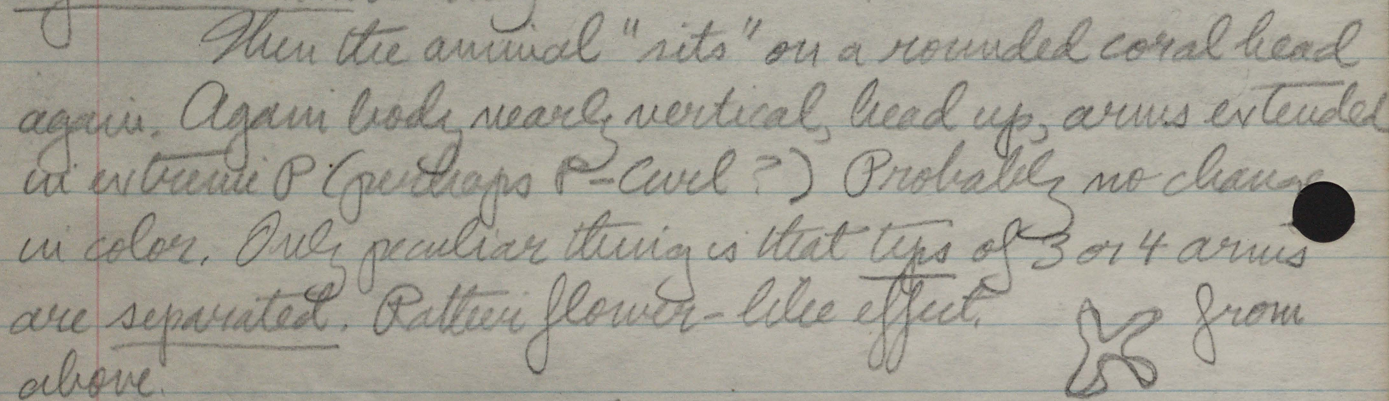 Then the animal "sits" on a rounded coral head
again. Again body nearly vertical, head up, arms extended
in extreme P (perhaps P-Curl?) Probably no change
in color. Only peculiar thing is that tips of 3 or 4 arms
are separated. Rather flower-like effect. from
above.